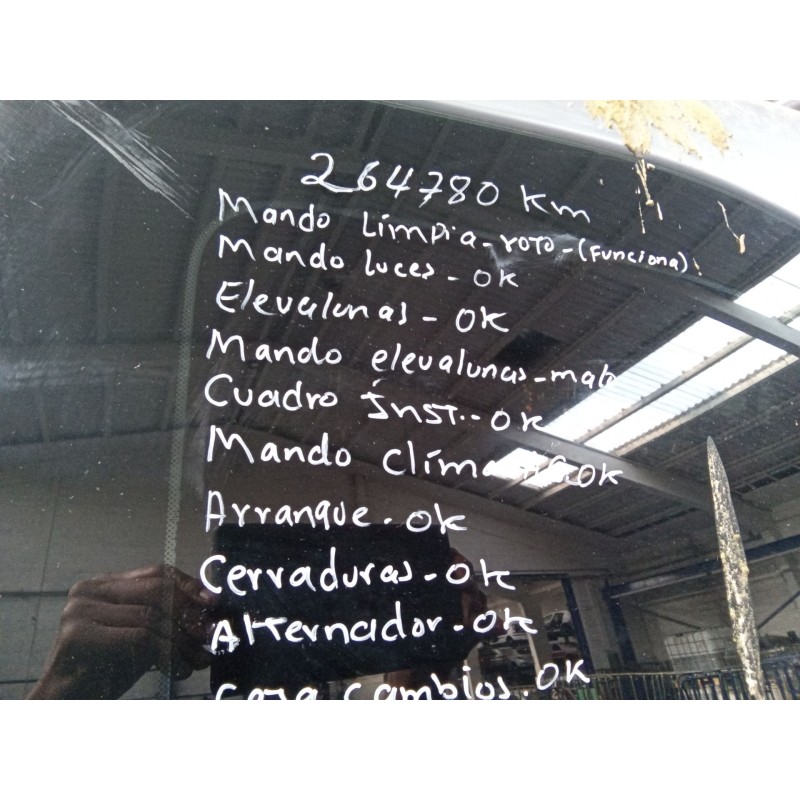 264780 Km
Mando Limpia-roto-(Funciona)
Mando luces-OK
Elevalunas-OK
Mando elevalunas-malo
Cuadro inst.-OK
Mando OK
Arranque-OK
Cerraduras-OK
Alternador-OK
Caja Cambios.OK